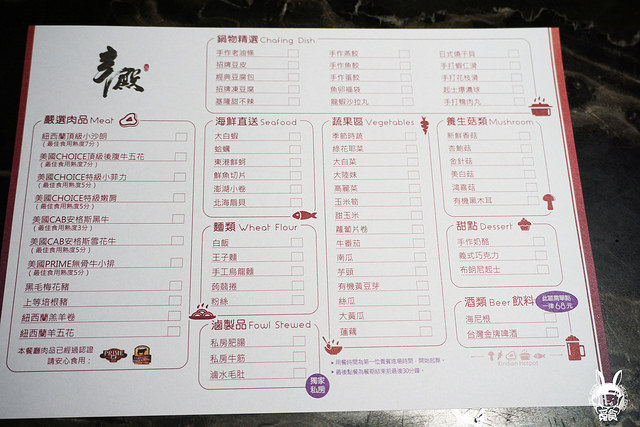 鍋物精選 Chafing Dish
手作老油條
招牌豆皮
經典豆腐包
招牌凍豆腐
基隆甜不辣
手作燕餃
手作魚餃
手作蛋餃
魚卵福袋
龍蝦沙拉丸
日式獅干貝
手打蝦仁滑
手打花枝滑
起士爆漿球
手打鴨肉丸
嚴選肉品 Meat
紐西蘭頂級小沙朗
(最佳食用熟度7分)
美國CHOICE頂級後腹牛五花
(最佳食用熟度7分)
美國CHOICE特級小菲力
(最佳食用熟度5分)
美國CHOICE特級嫩肩
(最佳食用熟度5分)
美國CAB安格斯黑牛
(最佳食用熟度3分)
美國CAB安格斯雪花牛
(最佳食用熟度5分)
美國PRIME無骨牛小排
(最佳食用熟度5分)
黑毛梅花豬
上等培根豬
紐西蘭羔羊卷
紐西蘭羊五花
本餐廳肉品已經過認證
請安心食用:
PRIME
海鮮直送 Seafood
大白蝦
蛤蠣
東港鮮蚵
鮮魚切片
澎湖小卷
北海扇貝
麵類 Wheat Flour
白飯
王子麵
手工烏龍麵
蒟蒻捲
粉絲
滷製品 Fowl Stewed
私房肥腸
私房牛筋
滷水毛肚
獨家
私房
蔬果區 Vegetables
季節時蔬
綠花耶菜
大白菜
大陸妹
高麗菜
玉米筍
甜玉米
蘿蔔片卷
牛番茄
南瓜
芋頭
有機黃豆芽
絲瓜
大黃瓜
蓮藕
養生菇類 Mushroom
新鮮香菇
杏鮑菇
金針菇
美白菇
鴻喜菇
有機黑木耳
甜點 Dessert
手作奶酪
義式巧克力
布朗尼起士
酒類 Beer 飲料
此區需單點
一律68元
海尼根
台灣金牌啤酒
用餐時間為第一位貴賓進場時間,開始起算。
最後點餐為餐期結束前最後30分鐘。